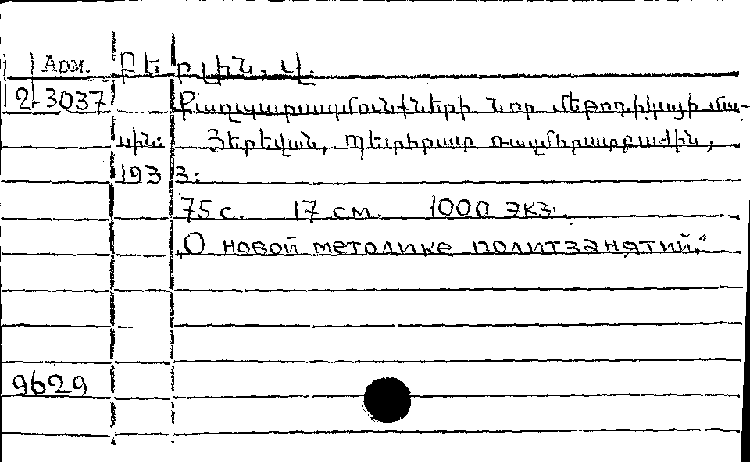 Арм. Բեռլին. Վ.
2-3037 Քաղպարապմունքների նոր մեթոդիկայի մա-
սին: Յերեվան, Պետհրատ ռազմհրատբաժին,
1933:
75 с. 17 см. 1000 экз.
„О новой методике политзанятий.“
9629